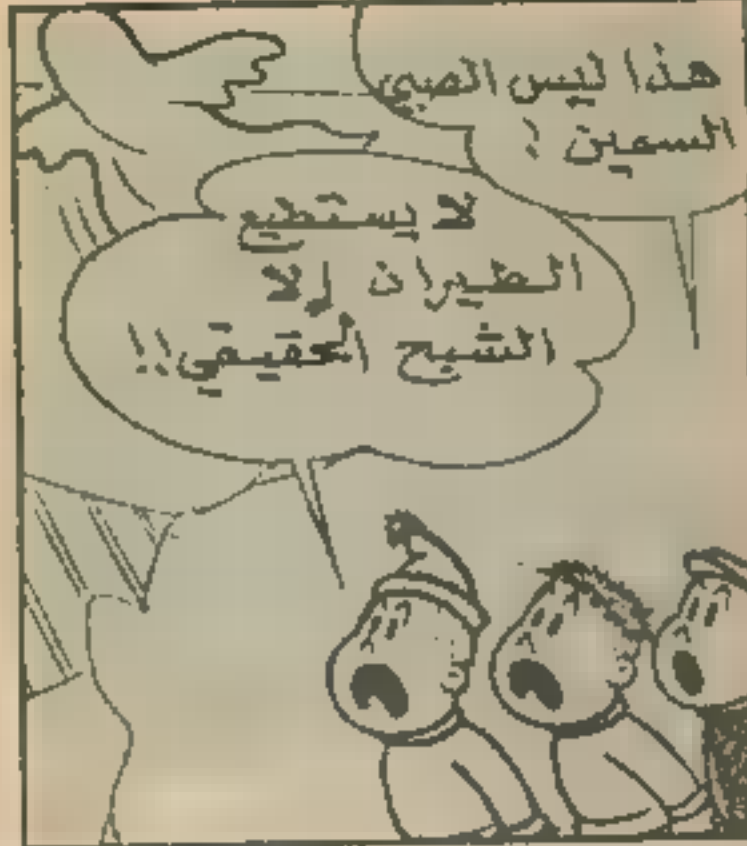 هذا ليس الصبي
السمين !
لا يستطيع
الطيران إلا
الشبح الحقيقي!!